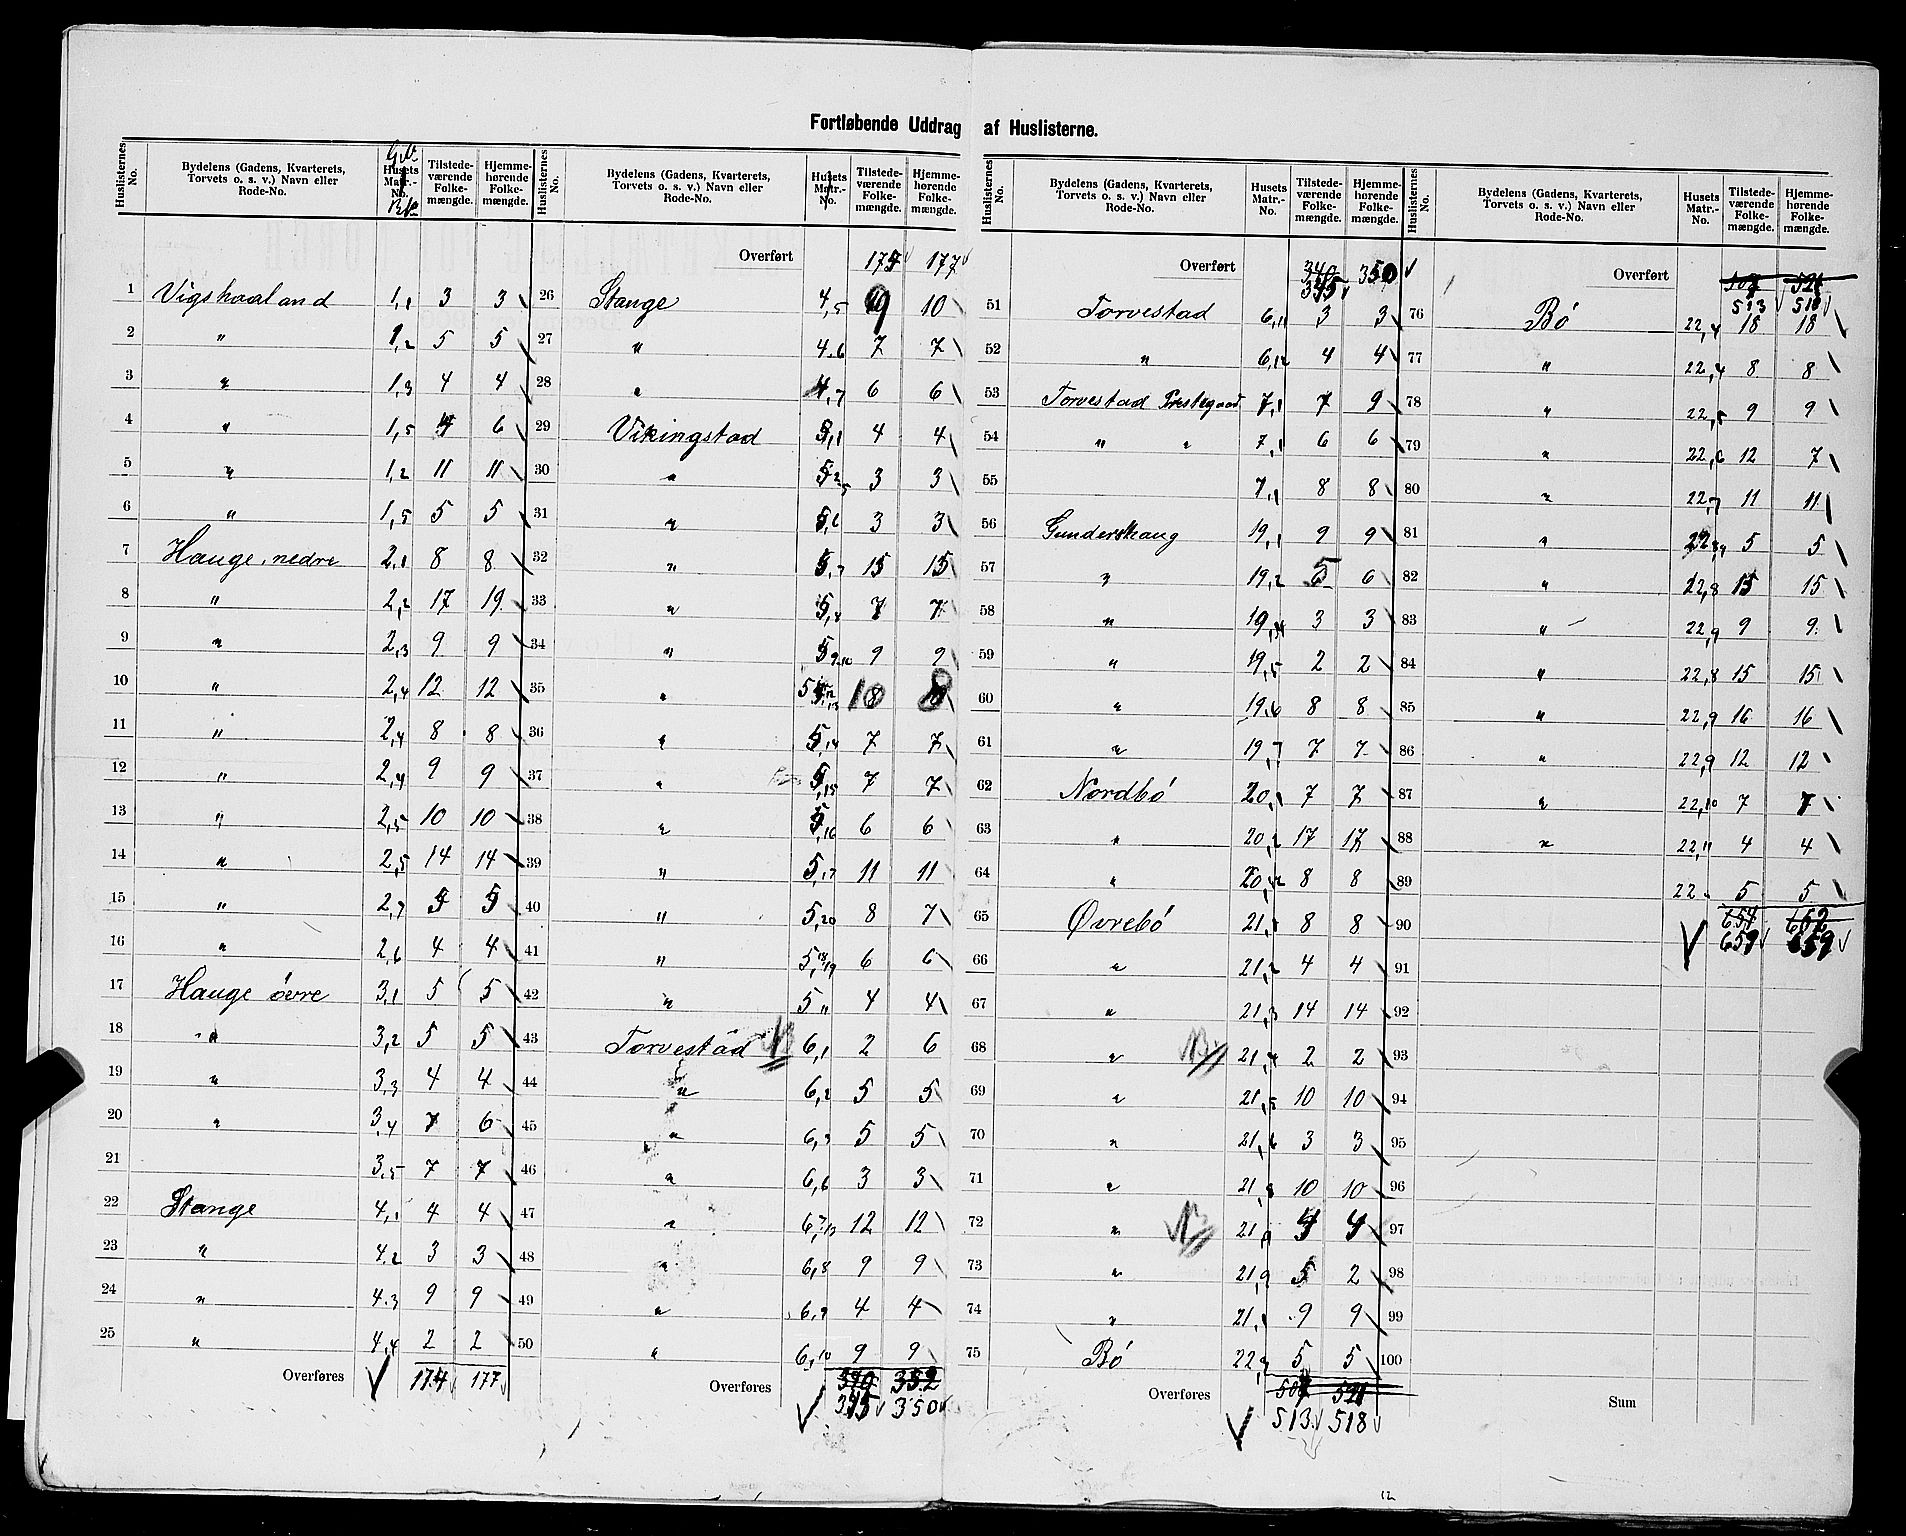 Fortløbende Uddrag af Huslisterne.
Huslisternes No. | Bydelens (Gadens, Kvarterets, Torvets o. s. v.) Navn eller Rode-No. | Husets Matr.-No. | Tilstedeværende Folkemængde. | Hjemmehørende Folkemængde.
1 Vigshaaland 1,1 3 3
2 " 1,2 5 5
3 " 1,3 4 4
4 " 1,5 6
5 " 1,2 11 11
6 " 1,5 5 5
7 Hauge, nedre 2,1 8 8
8 " 2,2 17 19
9 " 2,3 9 9
10 " 2,4 12 12
11 " 2,4 8 8
12 " 2,4 9 9
13 " 2,5 10 10
14 " 2,5 14 14
15 " 2,7 5 5
16 " 2,6 4 4
17 Hauge övre 3,1 5 5
18 " 3,2 5 5
19 " 3,3 4 4
20 " 3,4 7 6
21 3,5 7 7
22 Stange 4,1 4 4
23 " 4,2 3 3
24 " 4,3 9 9
25 " 4,4 2 2
Overføres 177
Huslisternes No. | Bydelens (Gadens, Kvarterets, Torvets o. s. v.) Navn eller Rode-No. | Husets Matr.-No. | Tilstedeværende Folkemængde. | Hjemmehørende Folkemængde.
Overført 175 177
26 Stange 4,5 10
27 " 4,6 7 7
28 " 4,7 6 6
29 Vikingstad 5,1 4 4
30 " 5 3 3
31 " 5,6 3 3
32 " 5,7 15 15
33 " 5,8 7 7
34 " 5,9,10 9 9
35 " 10 8
36 " 5,14 7 7
37 " 5,15 7 7
38 " 5,16 6 6
39 " 5,17 11 11
40 " 5,20 8 7
41 " 5,18/19 6 6
42 " 5 4 4
43 Torvestad 6,1 2 6
44 " 6,2 5 5
45 " 6,3 5 5
46 " 6,6 3 3
47 " 6,7,13 12 12
48 " 6,8 9 9
49 " 6,9 4 4
50 " 6,10 9 9
Overføres 340 352
345 350
Huslisternes No. | Bydelens (Gadens, Kvarterets, Torvets o. s. v.) Navn eller Rode-No. | Husets Matr.-No. | Tilstedeværende Folkemængde. | Hjemmehørende Folkemængde.
Overført 340 350
345
51 Torvestad 6,11 3 3
52 " 6,12 4 4
53 Torvestad Prestegaard 7,1 7 9
54 " " 7,1 6 6
55 7,1 8 8
56 Gunderskaug 19,1 9 9
57 " 19,2 5 6
58 " 19 3 3
59 " 19,5 2 2
60 " 19,6 8 8
61 " 19,7 7 7
62 Nordbó 20,1 7 7
63 " 20,2 17 17
64 " 20 8 8
65 Øvrebó 21,1 8 8
66 " 21,2 4 4
67 " 21,3 14 14
68 " 21,4 2 2
69 " 21,5 10 10
70 " 21,6 3 3
71 " 21,8 10 10
72 " 21,9 4
73 " 21,9 5 2
74 " 21,1 9 9
75 Bó 22 5 5
Overføres 521
513 518
Huslisternes No. | Bydelens (Gadens, Kvarterets, Torvets o. s. v.) Navn eller Rode-No. | Husets Matr.-No. | Tilstedeværende Folkemængde. | Hjemmehørende Folkemængde.
Overført 521
513 518
76 Bó 22,4 18 18
77 " 22,4 8 8
78 " 22,5 9 9
79 " 22,6 12 7
80 " 22,7 11 11
81 " 22 5 5
82 " 22,8 15 15
83 " 22,9 9 9
84 " 22,8 15 15
85 " 22,9 16 16
86 " 22,9 12 12
87 " 22,10 7 7
88 " 22,11 4 4
89 22 5 5
90 654 662
659 659
91
92
93
94
95
96
97
98
99
100
Sum
12